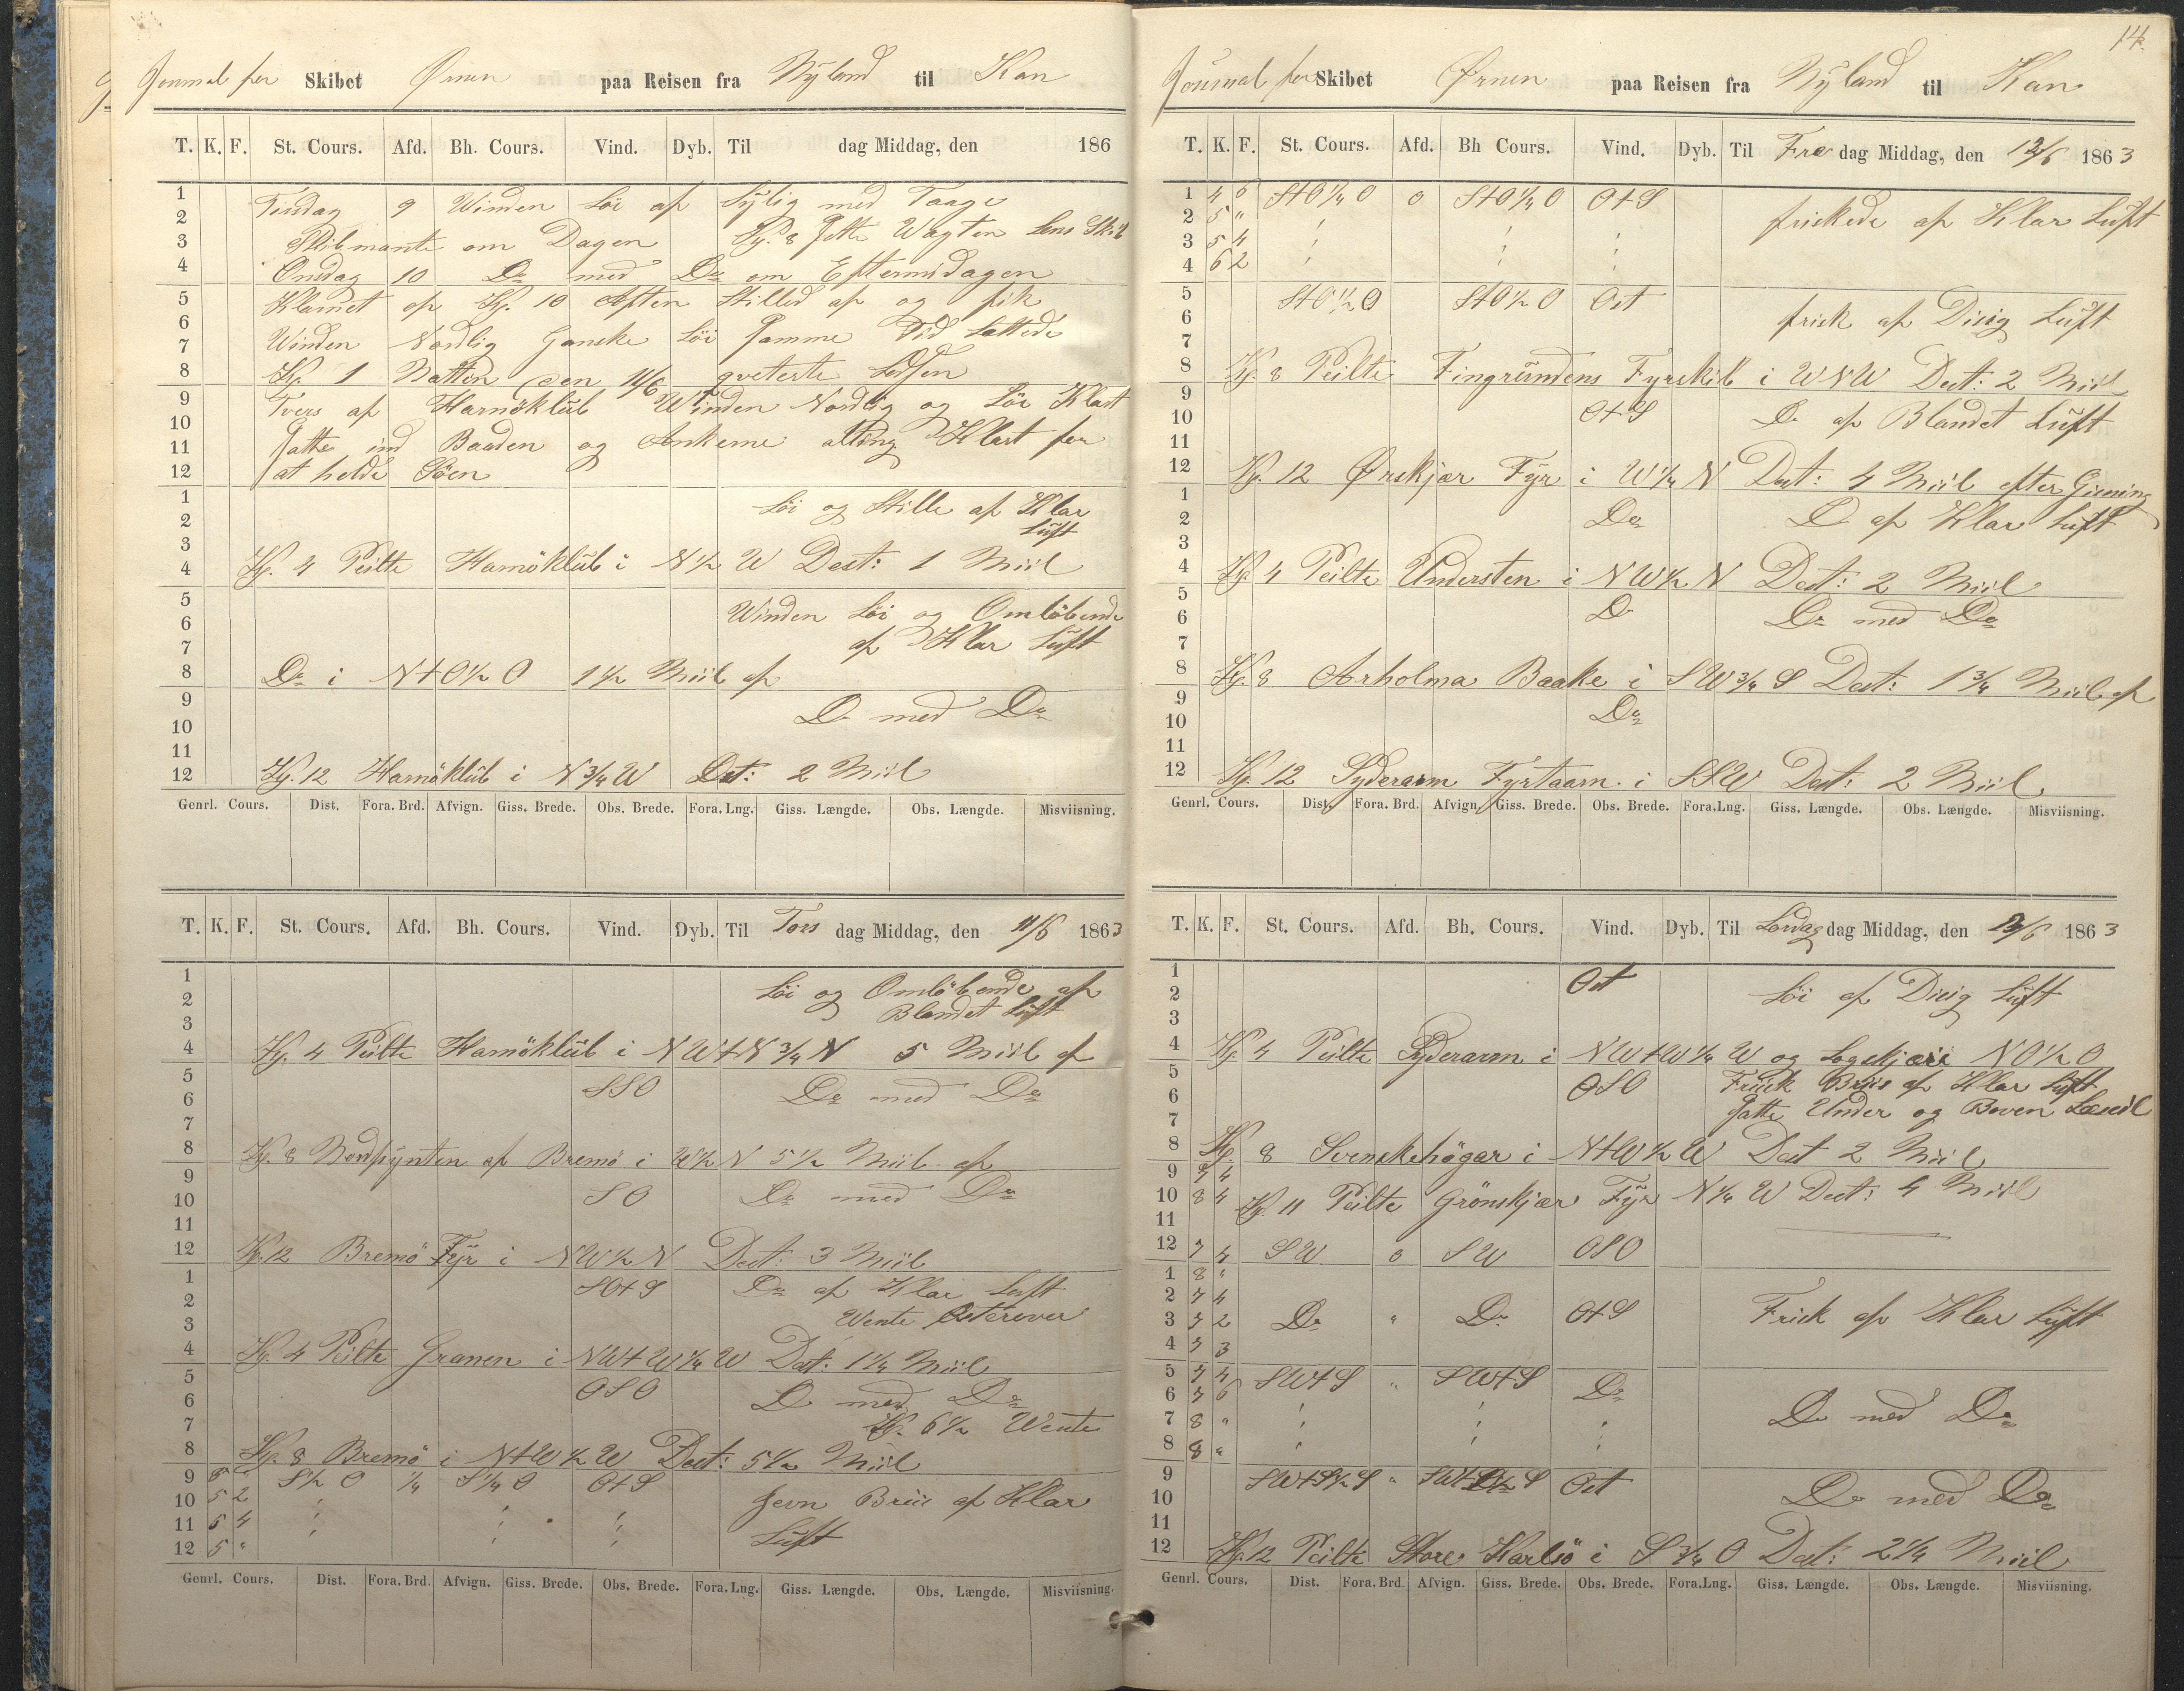 Journal for Skibet Ørnen paa Reisen fra Nyland til Kan
T. K. F. St. Cours. Afd. Bh. Cours. Vind. Dyb. Til dag Middag, den 186
1
Tirsdag 9 Winden Löi af Sylig med Taage
2
3
om Dagen Kl. 8 Satte Wagten Lens Skib
4
Onsdag 10 Do med Do om Eftermidagen
5
Klarnet op Kl. 10 Aften Stilled af og fik
6
Winden Nordlig Ganske Löi Samme Tid Lettede
7
8
Kl. 1 Natten den 11/6 qveterte Lodsen
9
Tvers af Harnöklub Winden Nordlig og Löi Klart
10
11
Satte ind Baaden og Ankerne alting Klart for
12
at holde Söen
1
Löi og Stille af Klar
2
Luft
3
4
Kl. 4 Peilte Harnöklub i N 1/2 W Dest: 1 Miil
5
Winden Löi og Omlöbende
6
7
af Klar Luft
8
Do i N+O 1/2 O 1 1/2 Miil af
9
Do med Do
10
11
12
Kl. 12 Harnöklub i N 3/4 W Dest: 2 Miil
Genrl. Cours. Dist. Fora. Brd. Afvign. Giss. Brede. Obs. Brede. Fora. Lng. Giss. Længde. Obs. Længde. Misviisning.
T. K. F. St. Cours. Afd. Bh. Cours. Vind. Dyb. Til Tors dag Middag, den 11/6 1863
1
Löi og Omlöbende af
2
Blandet Luft
3
4
Kl. 4 Peilte Harnöklub i NW+N 3/4 N 5 Miil af
5
SSO Do med Do
6
7
8
Kl. 8 Nordpynten af Bremö i W 1/2 N 5 1/2 Miil af
9
SO Do med Do
10
11
12
Kl. 12 Bremö Fyr i NW 1/2 N Dest: 3 Miil
1
SO+S Do af Klar Luft
2
Wente Østerover
3
4
Kl. 4 Peilte Granen i NW+W 1/4 W Dest: 1 1/4 Miil
5
OSO Do med Do
6
7
Kl. 6 1/2 Wente
8
Kl. 8 Bremö i N+W 1/2 W Dest: 5 1/2 Miil
9 S 1/2 O 1/4 S 1/4 O O+S
10 5 2 Jevn Briis af Klar
11 5 4
Luft
12 5 "
Genrl. Cours. Dist. Fora. Brd. Afvign. Giss. Brede. Obs. Brede. Fora. Lng. Giss. Længde. Obs. Længde. Misviisning.
14.
Journal for Skibet Ørnen paa Reisen fra Nyland til Kan
T. K. F. St. Cours. Afd. Bh Cours. Vind. Dyb. Til Fre dag Middag, den 12/6 1863
1 4 6 S+O 1/4 O 0 S+O 1/4 O O+S
2 5 " friskede af Klar Luft
3 5 4
4 6 2
5
S+O 1/2 O S+O 1/2 O Ost
6
frisk af Diisig Luft
7
8
Kl. 8 Peilte Fingrundens Fyrskib i WNW Dest: 2 Miil
9
10
O+S Do af Blandet Luft
11
12
Kl. 12 Ørskjær Fyr i W 1/4 N Dest: 4 Miil efter Gisning
1
2
Do Do af Klar Luft
3
4
Kl. 4 Peilte Understen i NW 1/2 N Dest: 2 Miil
5
6
Do Do med Do
7
8
Kl. 8 Arholma Baake i SW 3/4 S Dest: 1 3/4 Miil af
9
10
Do
11
12
Kl. 12 Syderarm Fyrtaarn i SSW Dest: 2 Miil
Genrl. Cours. Dist. Fora. Brd. Afvign. Giss. Brede. Obs. Brede. Fora.Lng. Giss. Længde. Obs. Længde. Misviisning.
T. K. F. St. Cours. Afd. Bh. Cours. Vind. Dyb. Til Lørdag dag Middag, den 13/6 1863
1
Ost
2
Löi af Diisig Luft
3
4
Kl 4 Peilte Syderarm i NW+W 1/4 W og NO 1/2 O
5
OSO Frisk Briis af Klar Luft
6
Satte Under og Boven Læseil
7
8
Kl. 8 Svenskehögar i N+W 1/2 W Dest 2 Miil
9 7 4
10 8 4
Kl. 11 Peilte Grönskjær Fyr N 1/4 W Dest: 4 Miil
11
12 7 4 SW 0 SW OSO
1 8 "
2 7 4
3 7 2 Do " Do O+S Frisk af Klar Luft
4 7 3
5 7 4 SW+S " SW+S Do
6 7 6
7 8 " Do med Do
8 8 "
9
SW+S 1/2 S " Ost
10
Do med Do
11
12
Kl. 12 Peilte Store Karlsö i S 3/4 O Dest: 2 1/4 Miil
Genrl. Cours. Dist. Fora. Brd. Afvign. Giss. Brede. Obs. Brede. Fora.Lng. Giss. Længde. Obs. Længde. Misviisning.